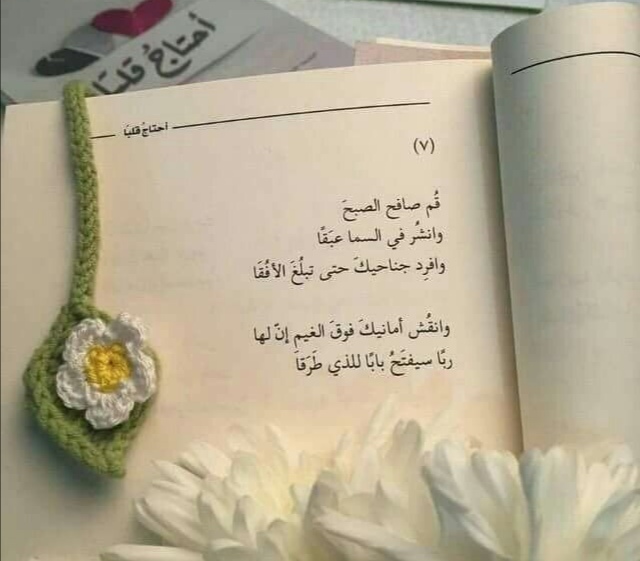 أحتاجُ قلبًا
أحتاجُ قلبًا
(٧)
قُم صافح الصبحَ
وانشُر في السما عبَقًا
وافرِد جناحيكَ حتى تبلُغَ الأفُقَا
وانقُش أمانيكَ فوقَ الغيمِ إنّ لها
ربًا سيفتَحُ بابًا للذي طَرَقَا